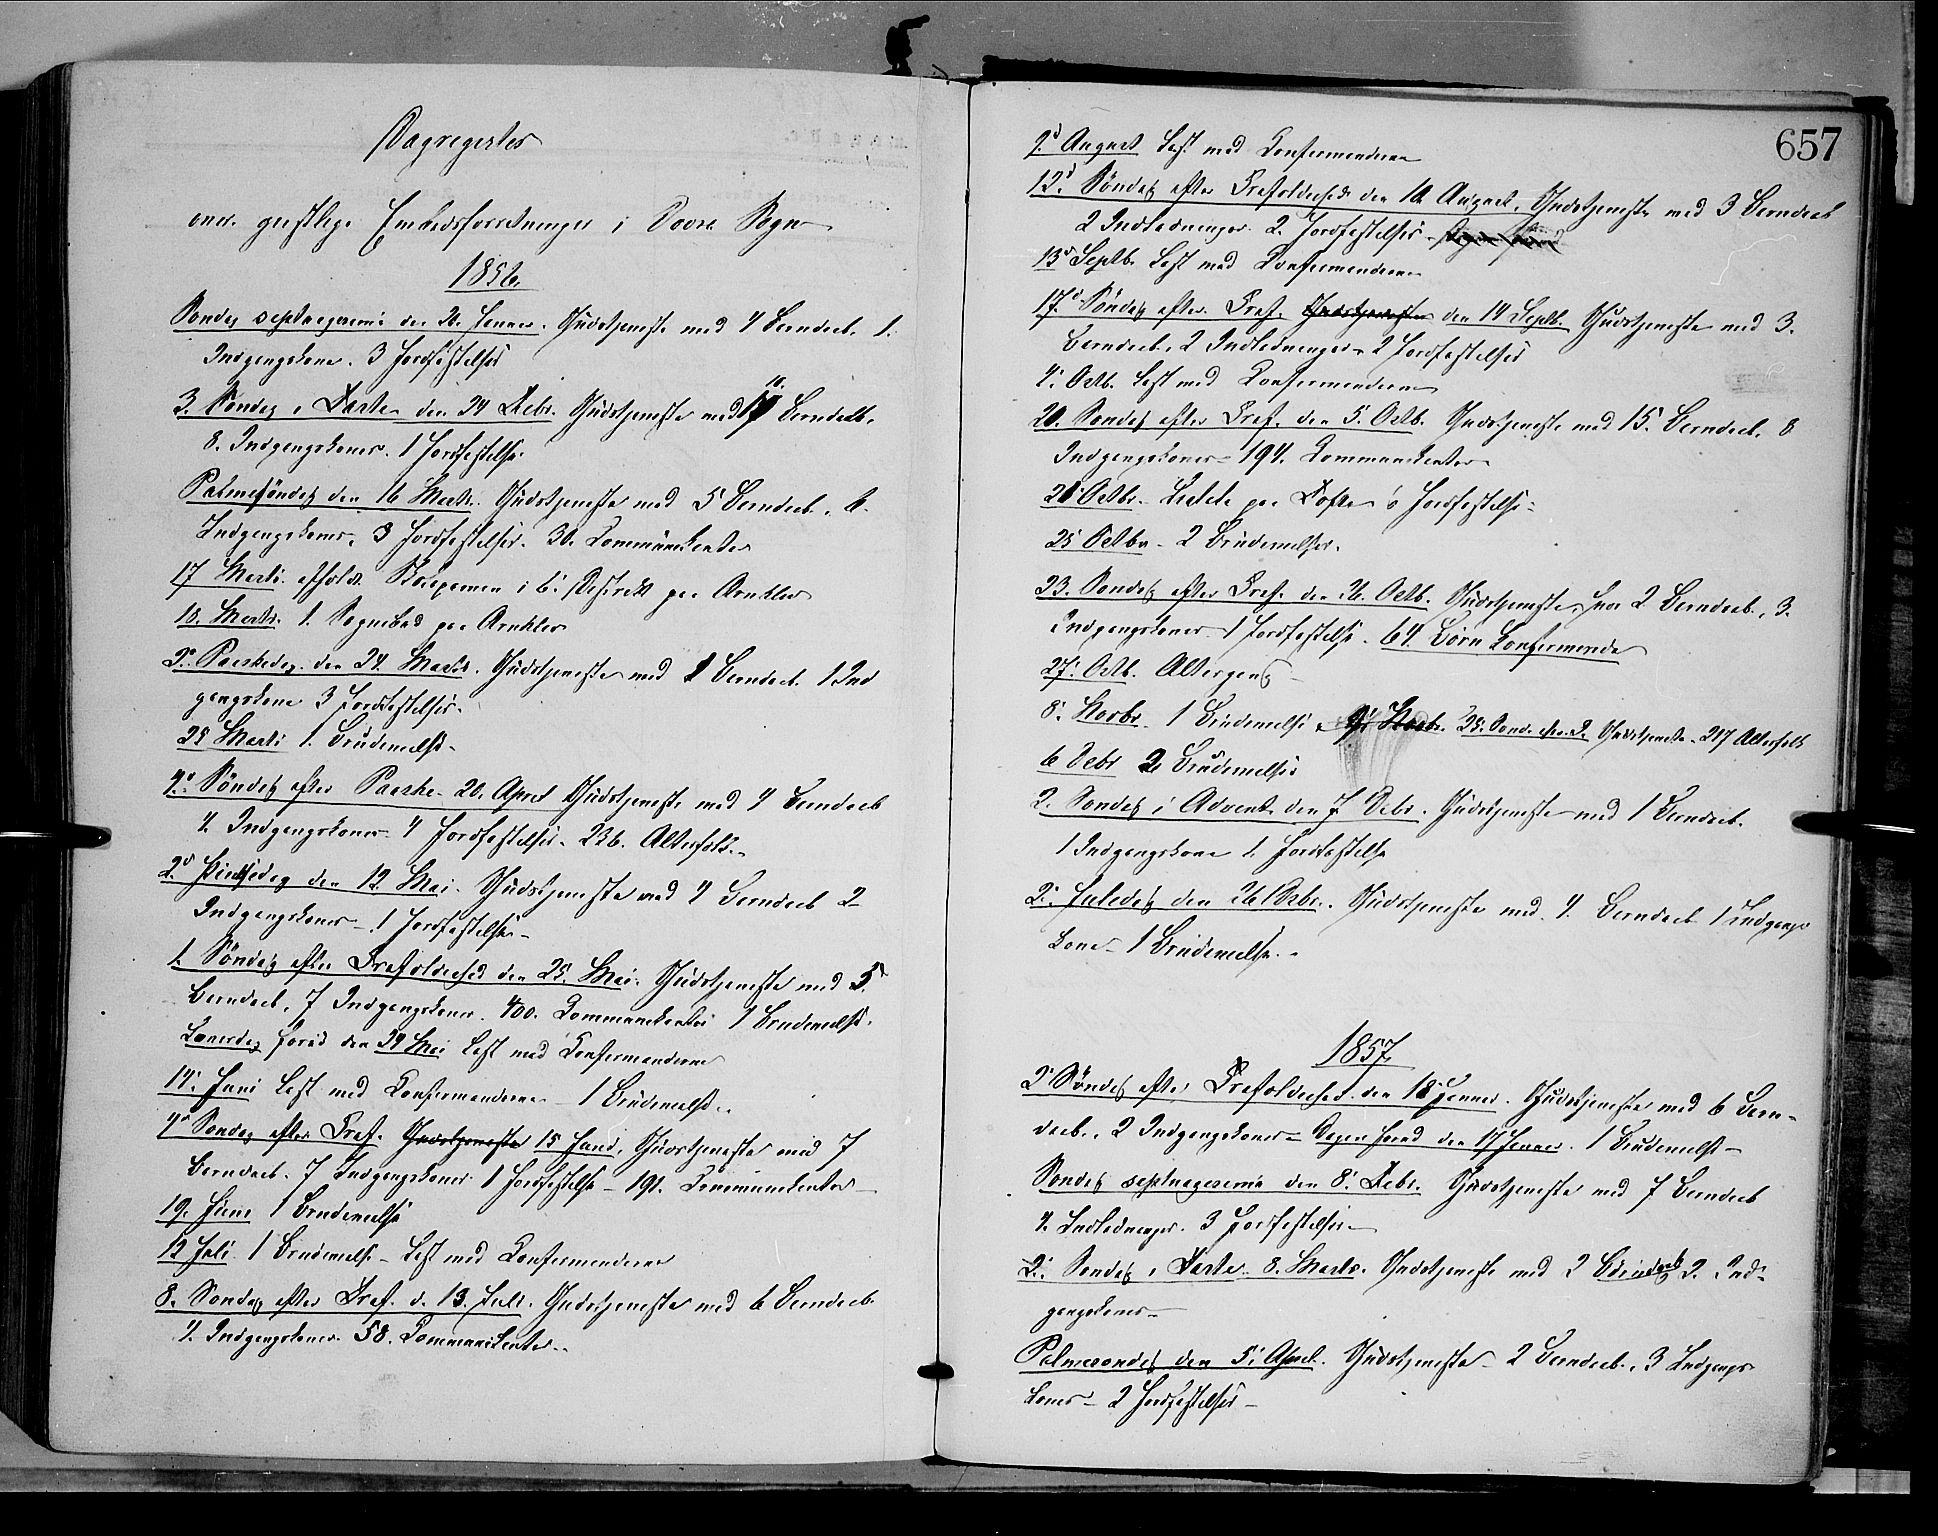 Dagregister
over geistlige Embedsforretninger i Dovre Sogn
1856.
Søndag septuagesima den 20. Januar. Gudstjeneste med 4 Berndaab. 1.
Indgangskone. 3 Jordfæstelser
3. Søndag i Faste den 24 Febr. Gudstjeneste med 10. Berndaab.
8. Indgangskoner. 1 Jordfæstelse.
Palmesøndag den 16 Marts. Gudstjeneste med 5 Berndaab.
Indgangskoner. 3 Jordfæstelser. 30. Communicanter
17 Marts. afholdt Examen i 6. Distrikt paa
18. Marts. 1. Sognebud paa
2. Paaskedag den 24. Marts. Gudstjeneste med 1 Berndaab. 1 Ind
gangskone 3 Jordfæstelser.
25 Marts 1. Brudevielse.
4. Søndag efter Paaske 20. April Gudstjeneste med 4 Berndaab
4. Indgangskoner 4 Jordfæstelser. 236. Altersfolk.
2. Pintsedag den 12. Mai. Gudstjeneste med 4 Berndaab 2
Indgangskoner 1 Jordfæstelse
1. Søndag efter Trefoldighed den 25. Mai. Gudstjeneste med 5.
Berndaab. 7 Indgangskoner. 400. Communicanter 1 Brudevielse.
Løverdag forud den 24 Mai Læst med Confirmanderne
14. Juni Læst med Confirmanderne 1 Brudevielse.
4. Søndag efter Tref. Gudstjeneste 15 Juni, Gudstjeneste med 7
Berndaab. 7 Indgangskoner 1 Jordfæstelse 191. Communicanter
19. Juni 1 Brudevielse
12 Juli. 1 Brudevielse Læst med Confirmanderne
8. Søndag efter Tref. d. 13. Juli. Gudstjeneste med 6 Berndaab.
4. Indgangskoner. 58. Communicanter.
657
9. August Læst med Confirmanderne
12. Søndag efter Trefoldighed den 10 August. Gudstjeneste med 3 Berndaab
2 Indledninger. 2. Jordfæstelser
13 Septb. Læst med Confirmanderne
17. Søndag efter Tref. Gudstjeneste den 14 Septb. Gudstjeneste med 3.
Berndaab. 2 Indledninger 2 Jordfæstelser
4. Octb. Læst med Confirmanderne
20. Søndag efter Tref. den 5. Octb. Gudstjeneste med 15. Berndaab. 8
Indgangskoner 194. Communicanter
Octbr. paa Tofte Jordfæstelse
25 Octbr 2 Brudevielser.
23. Søndag efter Tref. den 26. Octb. Gudstjeneste, 2 Berndaab. 3.
Indgangskoner 1 Jordfæstelse. 64. Børn Confirmerede
27. Octb. Altergang
8. Novbr. 1 Brudevielse 9. Novbr. 25. Sønd. Gudstjeneste 217 Altersfolk
6 Debr 2 Brudevielser
2. Søndag i Advent den 7 Debr. Gudstjeneste med 1 Berndaab.
1 Indgangskone 1. Jordfæstelse
2. Juledag den 26 Debr. Gudstjeneste med 4. Berndaab 1 Indgangs
kone 1 Brudevielse.
1857
2 Søndag efter Trefoldighed den 18 Januar. Gudstjeneste med 6 Bern-
daab. 2 Indgangskoner Dagen forud den 17 Januar. 1 Brudevielse
Søndag septuagesima den 8. Febr. Gudstjeneste med 7 Berndaab
4. Indledninger. 3 Jordfæstelser
2. Søndag i Faste. 8. Marts. Gudstjeneste med 2 Berndaab 2. Ind-
gangskoner
Palmesøndag den 5. April. Gudstjeneste 2 Berndaab. 3 Indgangs
koner 2 Jordfæstelser